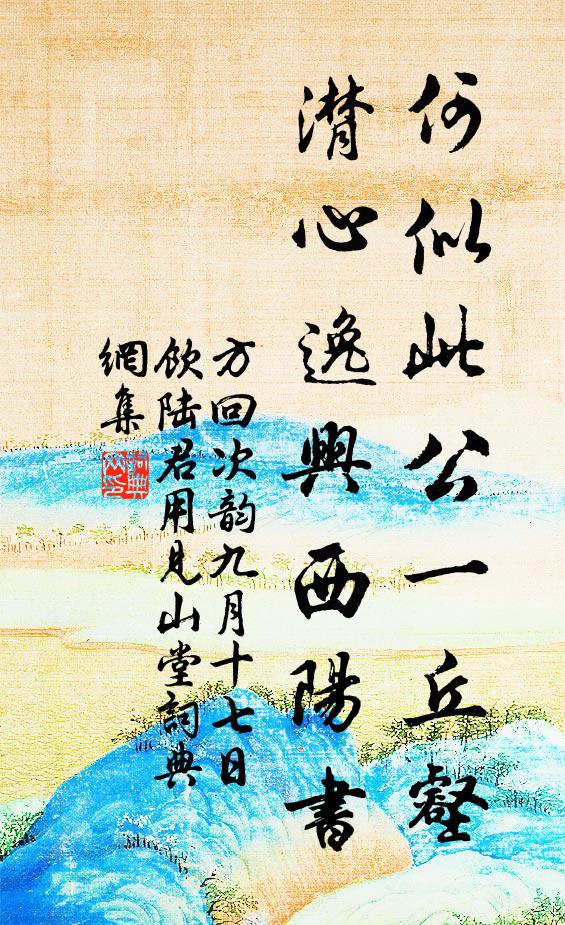 何似此公一丘壑
潸心逸興西陽書
方回次韵九月十七日
飲陸君用見山堂詞典
網集